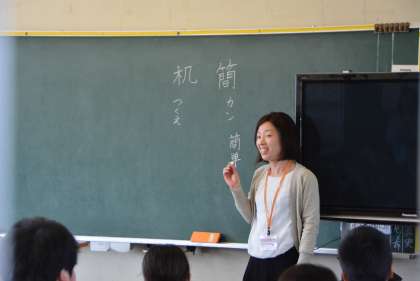 簡
カン
簡単
机
つくえ